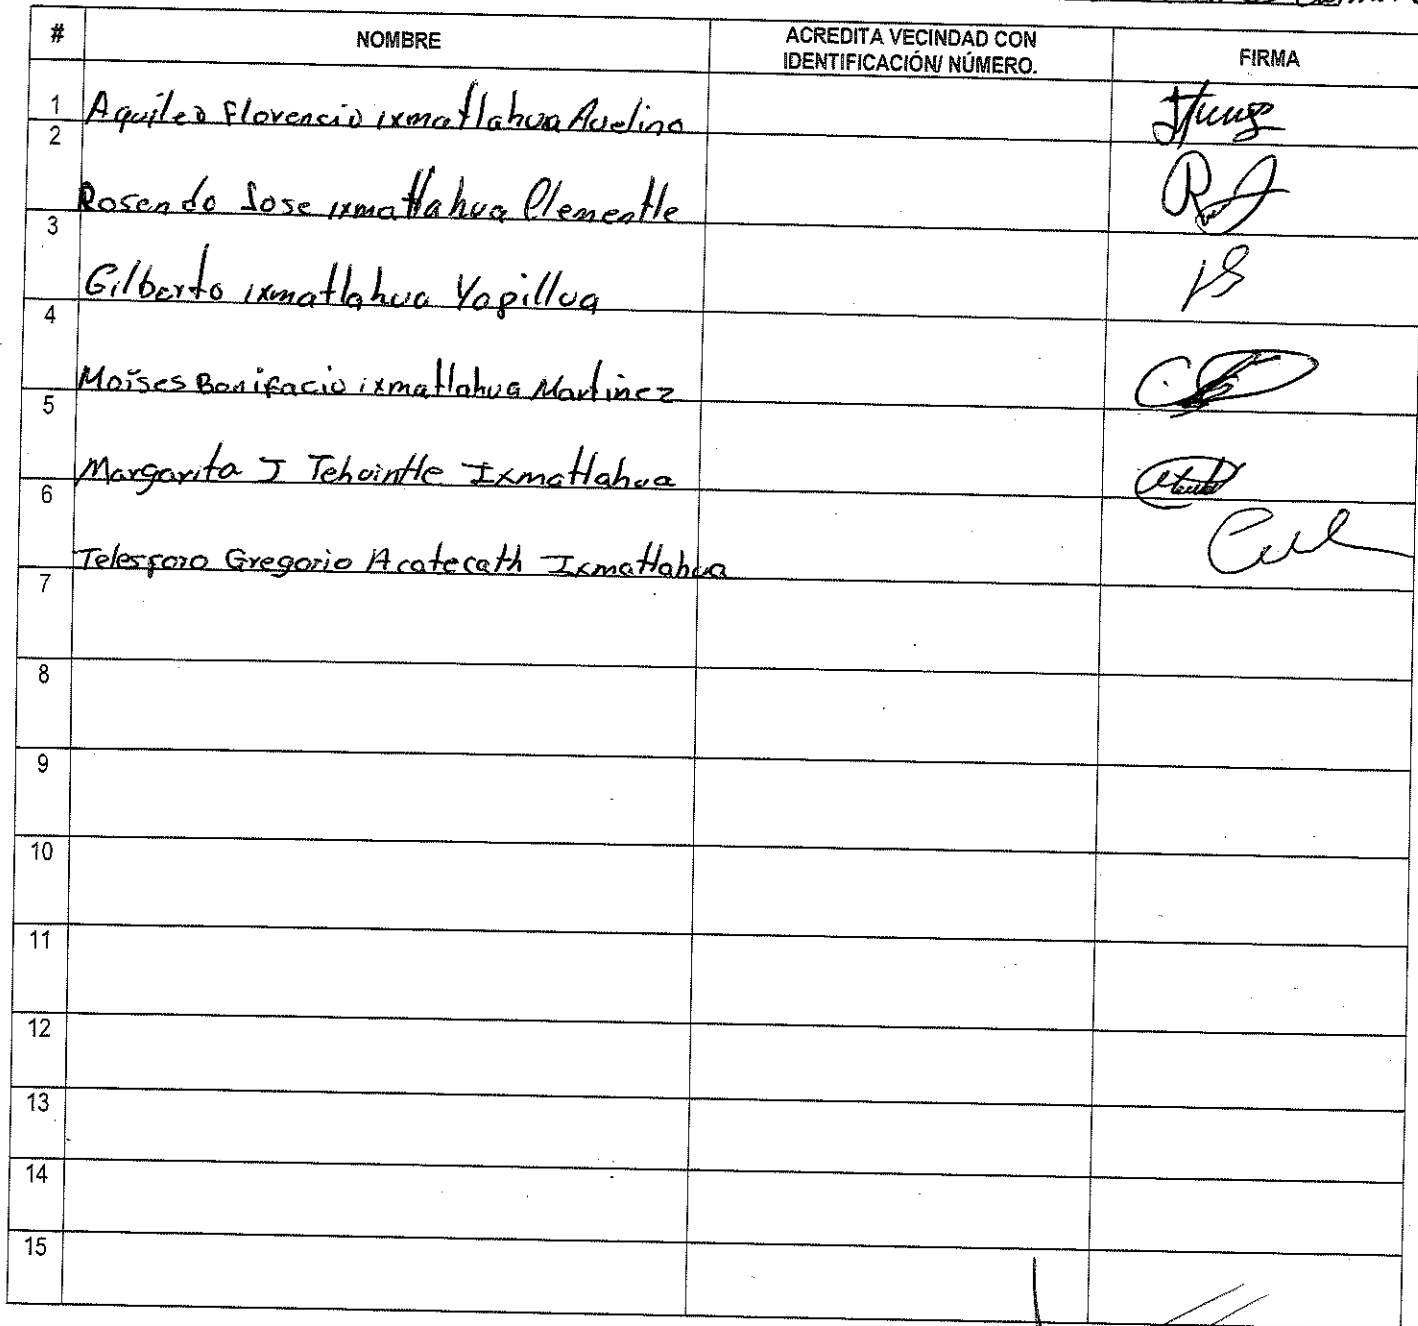 # NOMBRE ACREDITA VECINDAD CON IDENTIFICACIÓN/ NÚMERO. FIRMA
1 Aquileo Florencio ixmatlahua Avelino
2 Rosendo Jose ixmatlahua Clementle
3 Gilberto ixmatlahua Yopillua
4 Moises Bonifacio ixmatlahua Martinez
5 Margarita J Tehuintle Ixmatlahua
6 Telesforo Gregorio Acatecatl Ixmatlahua
7
8
9
10
11
12
13
14
15